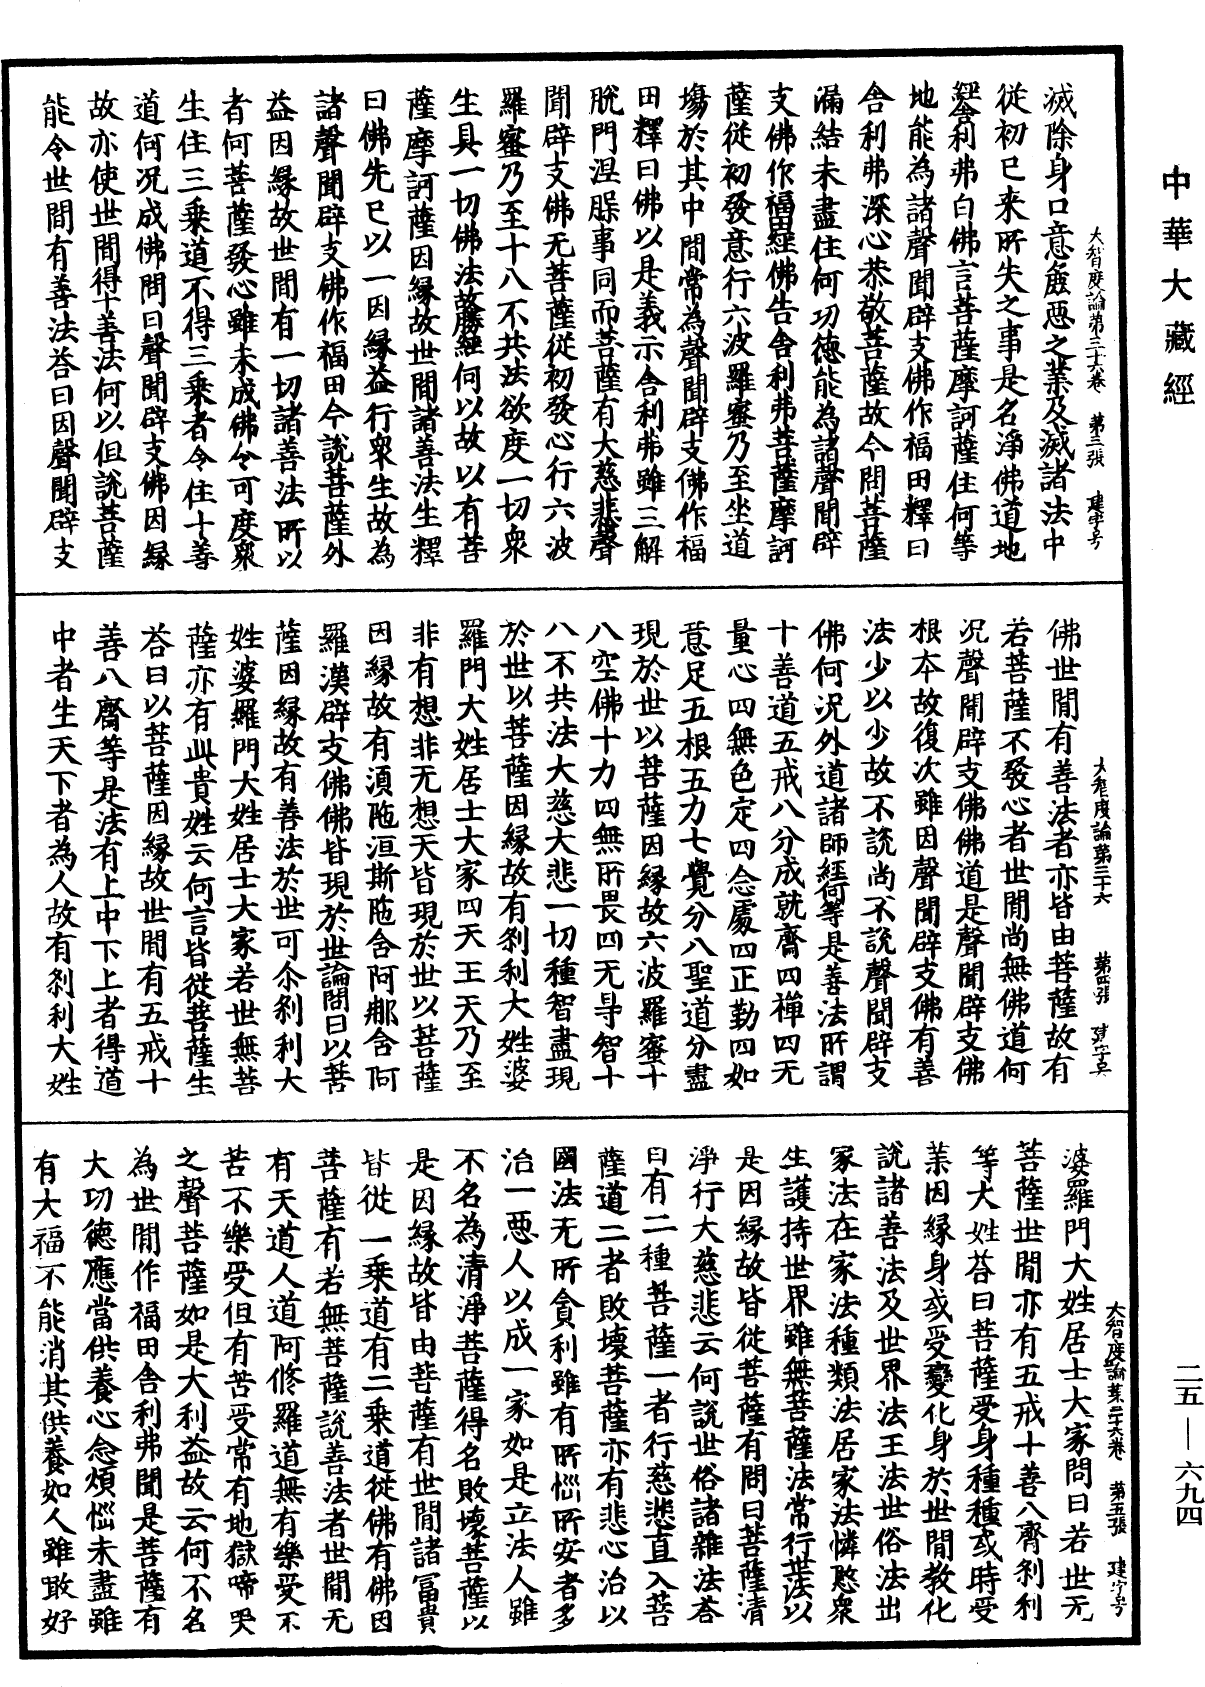 中華大藏經
大智度論第三十六卷　第三張　建字号
滅除身口意麁惡之業及滅諸法中
從初已来所失之事是名淨佛道地
經舍利弗白佛言菩薩摩訶薩住何等
地能為諸聲聞辟支佛作福田釋曰
舍利弗深心恭敬菩薩故今問菩薩
漏結未盡住何功德能為諸聲聞辟
支佛作福田經佛告舍利弗菩薩摩訶
薩從初發意行六波羅蜜乃至坐道
塲於其中間常為聲聞辟支佛作福
田釋曰佛以是義示舍利弗雖三解
脫門涅槃事同而菩薩有大慈悲聲
聞辟支佛无菩薩從初發心行六波
羅蜜乃至十八不共法欲度一切衆
生具一切佛法故勝經何以故以有菩
薩摩訶薩因緣故世間諸善法生釋
曰佛先已以一因緣益行衆生故為
諸聲聞辟支佛作福田今說菩薩外
益因緣故世間有一切諸善法所以
者何菩薩發心雖未成佛令可度衆
生住三乘道不得三乘者令住十善
道何況成佛問曰聲聞辟支佛因緣
故亦使世間得十善法何以但說菩薩
能令世間有善法荅曰因聲聞辟支
大智度論第三十六　第四張　建字号
佛世間有善法者亦皆由菩薩故有
若菩薩不發心者世間尚無佛道何
況聲聞辟支佛佛道是聲聞辟支佛
根本故復次雖因聲聞辟支佛有善
法少以少故不說尚不說聲聞辟支
佛何況外道諸師經何等是善法所謂
十善道五戒八分成就齋四禪四无
量心四無色定四念處四正勤四如
意足五根五力七覺分八聖道分盡
現於世以菩薩因緣故六波羅蜜十
八空佛十力四無所畏四无㝵智十
八不共法大慈大悲一切種智盡現
於世以菩薩因緣故有剎利大姓婆
羅門大姓居士大家四天王天乃至
非有想非无想天皆現於世以菩薩
因緣故有湏陁洹斯陁含阿那含阿
羅漢辟支佛佛皆現於世論問曰以菩
薩因緣故有善法於世可尒剎利大
姓婆羅門大姓居士大家若世無菩
薩亦有此貴姓云何言皆從菩薩生
荅曰以菩薩因緣故世間有五戒十
善八齋等是法有上中下上者得道
中者生天下者為人故有剎利大姓
大智度論第三十六卷　第五張　建字号
婆羅門大姓居士大家問曰若世无
菩薩世間亦有五戒十善八齊剎利
等大姓荅曰菩薩受身種種或時受
業因緣身或受變化身於世間教化
說諸善法及世界法王法世俗法出
家法在家法種類法居家法憐愍衆
生護持世界雖無菩薩法常行世法以
是因緣故皆從菩薩有問曰菩薩清
淨行大慈悲云何說世俗諸雜法荅
曰有二種菩薩一者行慈悲直入菩
薩道二者敗壞菩薩亦有悲心治以
國法无所貪利雖有所惱所安者多
治一惡人以成一家如是立法人雖
不名為清淨菩薩得名敗壞菩薩以
是因緣故皆由菩薩有世間諸冨貴
皆從一乘道有二乘道從佛有佛因
菩薩有若無菩薩說善法者世間无
有天道人道阿脩羅道無有樂受不
苦不樂受但有苦受常有地獄啼哭
之聲菩薩如是大利益故云何不名
為世間作福田舍利弗聞是菩薩有
大功德應當供養心念煩惱未盡雖
有大福不能消其供養如人雖噉好
二五—六九四